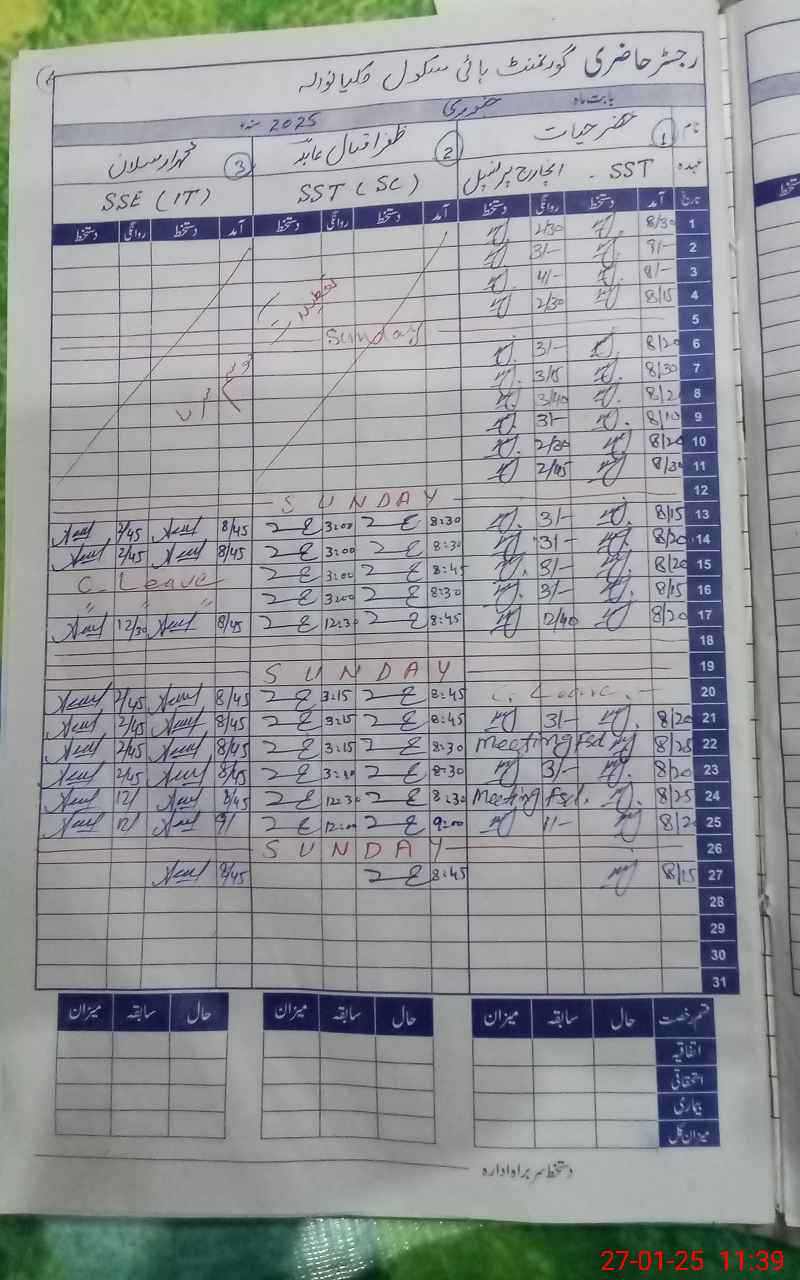 رجسٹر حاضری گورنمنٹ ہائی سکول
بابت ماہ جنوری 2025 سنہ
نام 1 خضر حیات 2 ظفر اقبال عابد 3
عہدہ SST - انچارج پرنسپل SST (SC) SSE (IT)
تاریخ آمد دستخط روانگی دستخط آمد دستخط روانگی دستخط آمد دستخط روانگی دستخط
1 8/30 2/30
2 9/- 3/-
3 8/- 4/-
4 8/15 2/30
5 Sunday
6 8/20 3/-
7 8/30 3/15
8 3/40
9 8/10 3/-
10 8/20 2/30
11 8/30 2/45
12 SUNDAY
13 8/15 3/- 8:30 3:00 8/45 2/45
14 8/20 3/- 8:30 3:00 8/45 2/45
15 8/20 3/- 8:45 3:00 C. Leave
16 8/15 3/- 8:30 3:00 " " "
17 8/20 12/40 8:45 12:30 8/45 12/30
18
19 SUNDAY
20 C. Leave - 8:45 3:15 8/45 2/45
21 8/20 3/- 8:45 3:15 8/45 2/45
22 8/25 Meeting Fsd 8:30 3:15 8/45 2/45
23 8/20 3/- 8:30 8/45 2/45
24 8/25 Meeting Fsd. 8:30 12:30 8/45 12/
25 8/20 9:00 12:00 9/ 12/
26 SUNDAY
27 8/15 8:45 8/45
28
29
30
31
قسم رخصت حال سابقہ میزان حال سابقہ میزان حال سابقہ میزان
اتفاقیہ
استحقاقی
بیماری
میزان کل
دستخط سربراہ ادارہ
27-01-25 11:39